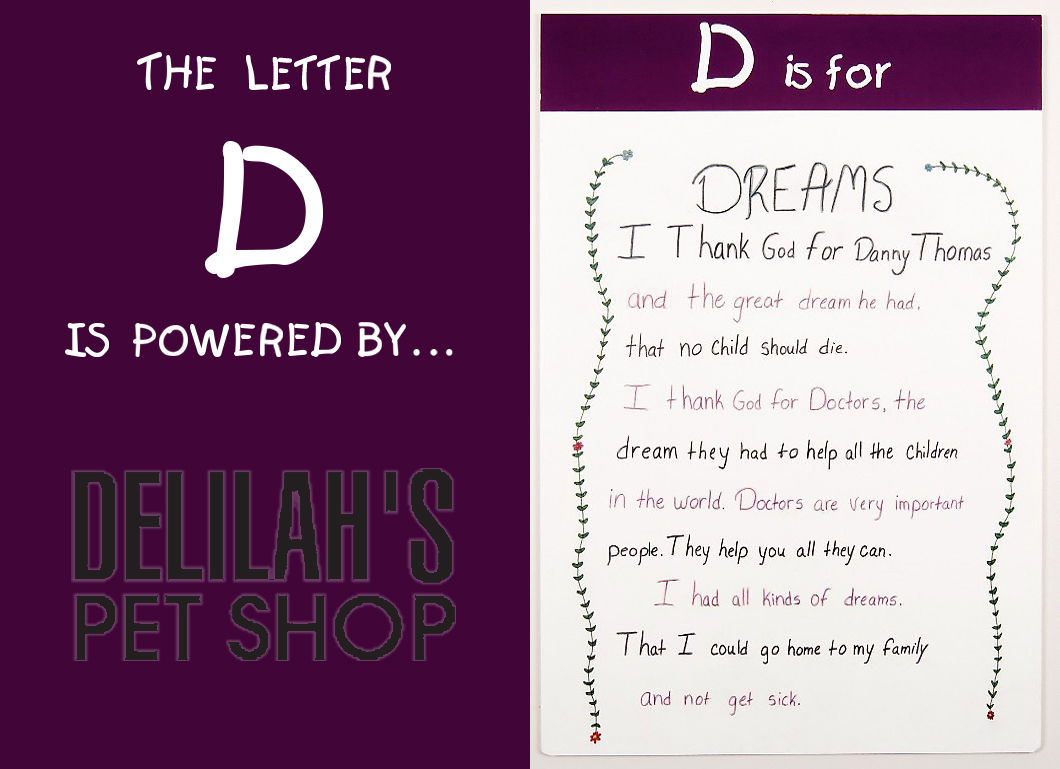 THE LETTER
D
IS POWERED BY...
DELILAH'S
PET SHOP
D is for
DREAMS
I Thank God for Danny Thomas
and the great dream he had.
that no child should die.
I thank God for Doctors, the
dream they had to help all the children
in the world. Doctors are very important
people. They help you all they can.
I had all kinds of dreams.
That I could go home to my family
and not get sick.